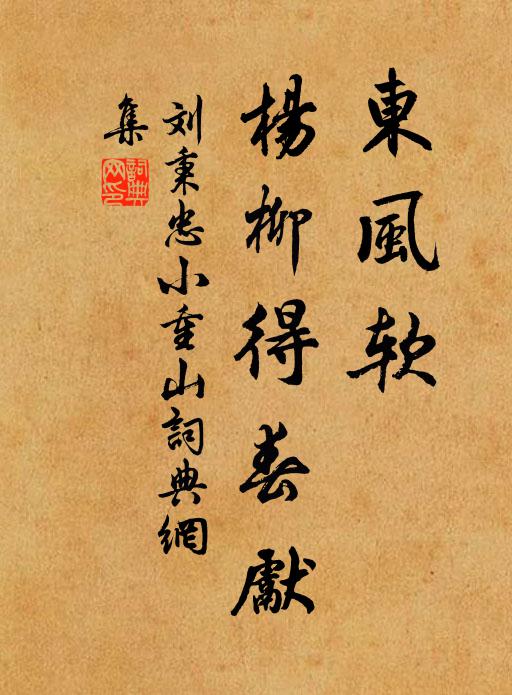 東風軟
楊柳得春獻
刘秉忠小重山詞典網
集
詞典
网印